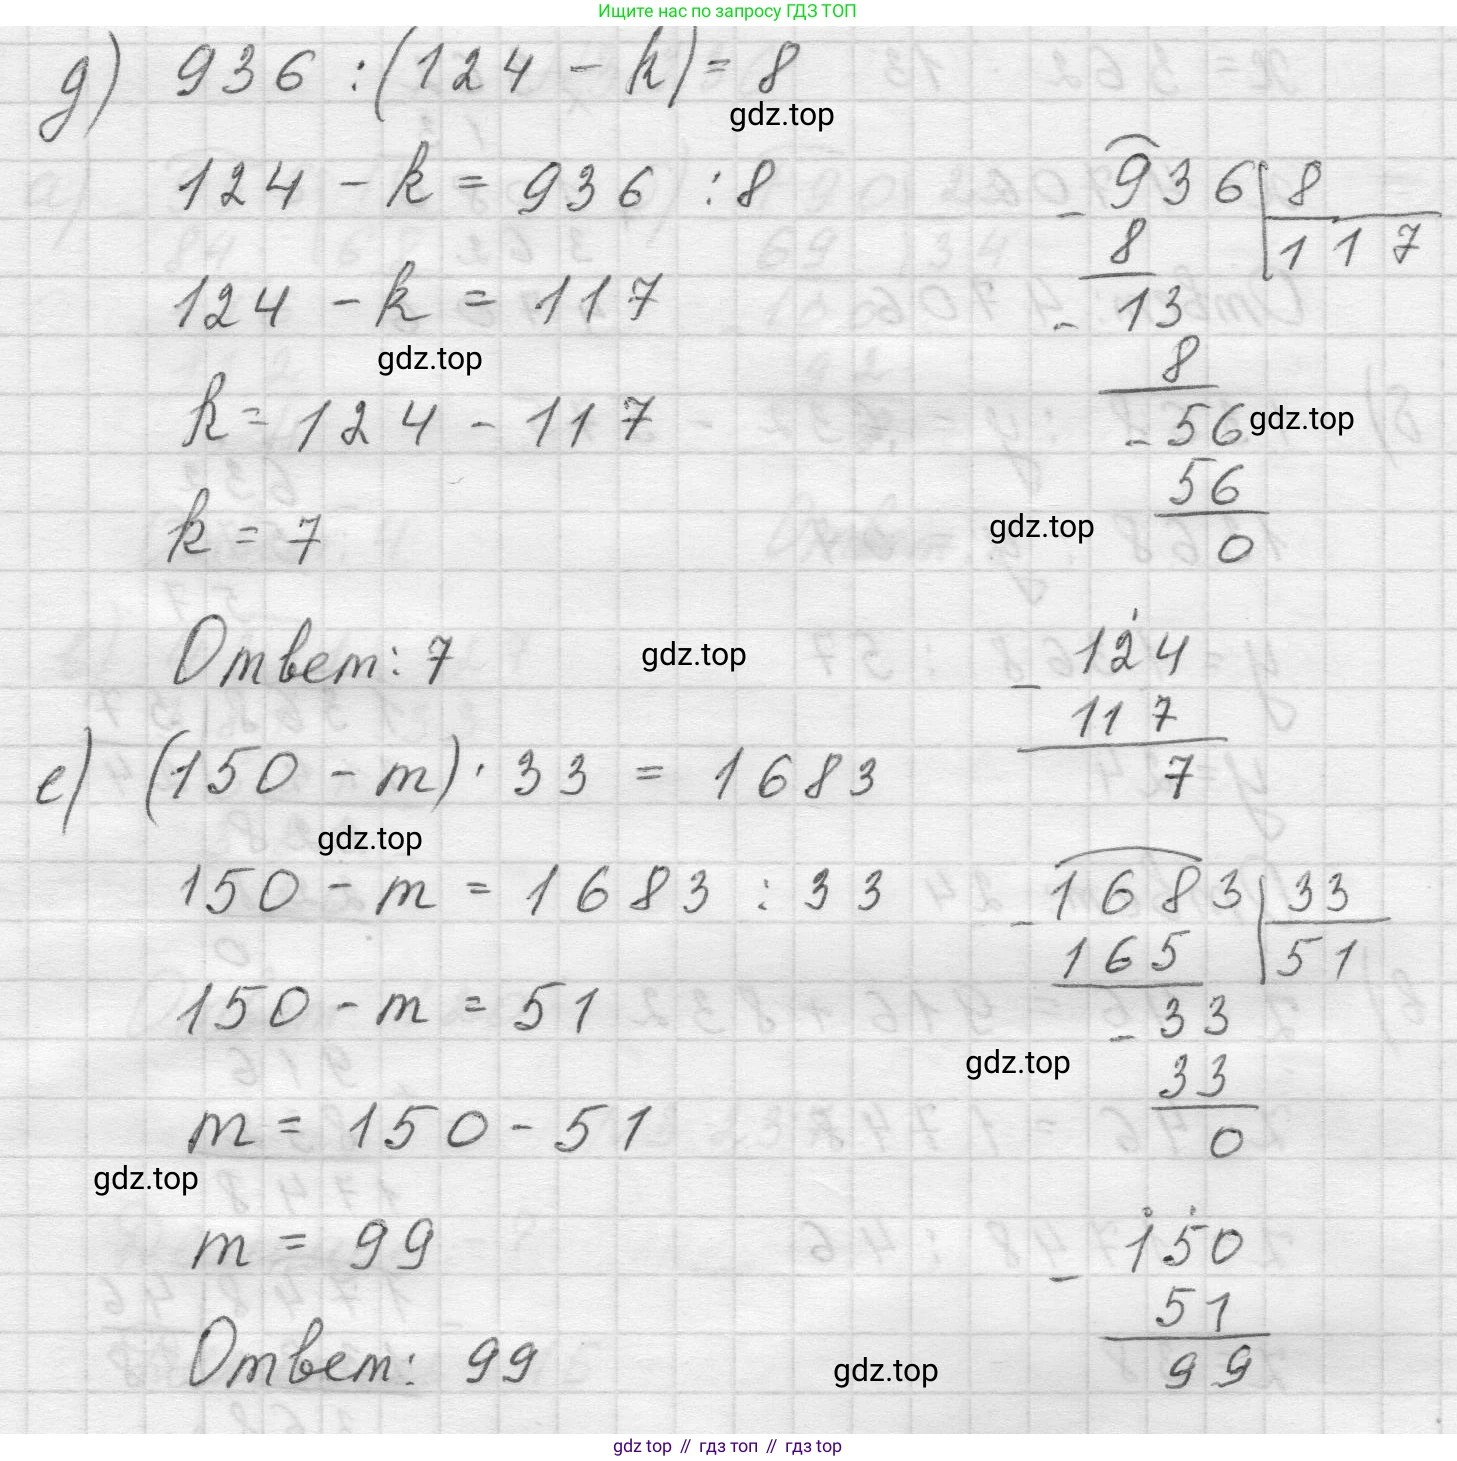 Ищите нас по запросу ГДЗ ТОП
д) 936 : (124 - k) = 8
gdz.top
124 - k = 936 : 8
124 - k = 117
gdz.top
k = 124 - 117
k = 7
Ответ: 7
gdz.top
- 936 | 8
8 | 117
- 13
8
- 56
gdz.top
56
gdz.top
0
- 124
117
7
е) (150 - m) · 33 = 1683
gdz.top
150 - m = 1683 : 33
150 - m = 51
m = 150 - 51
gdz.top
m = 99
Ответ: 99
- 1683 | 33
165 | 51
- 33
gdz.top
33
0
- 150
51
99
gdz.top
gdz top // гдз топ // gdz top